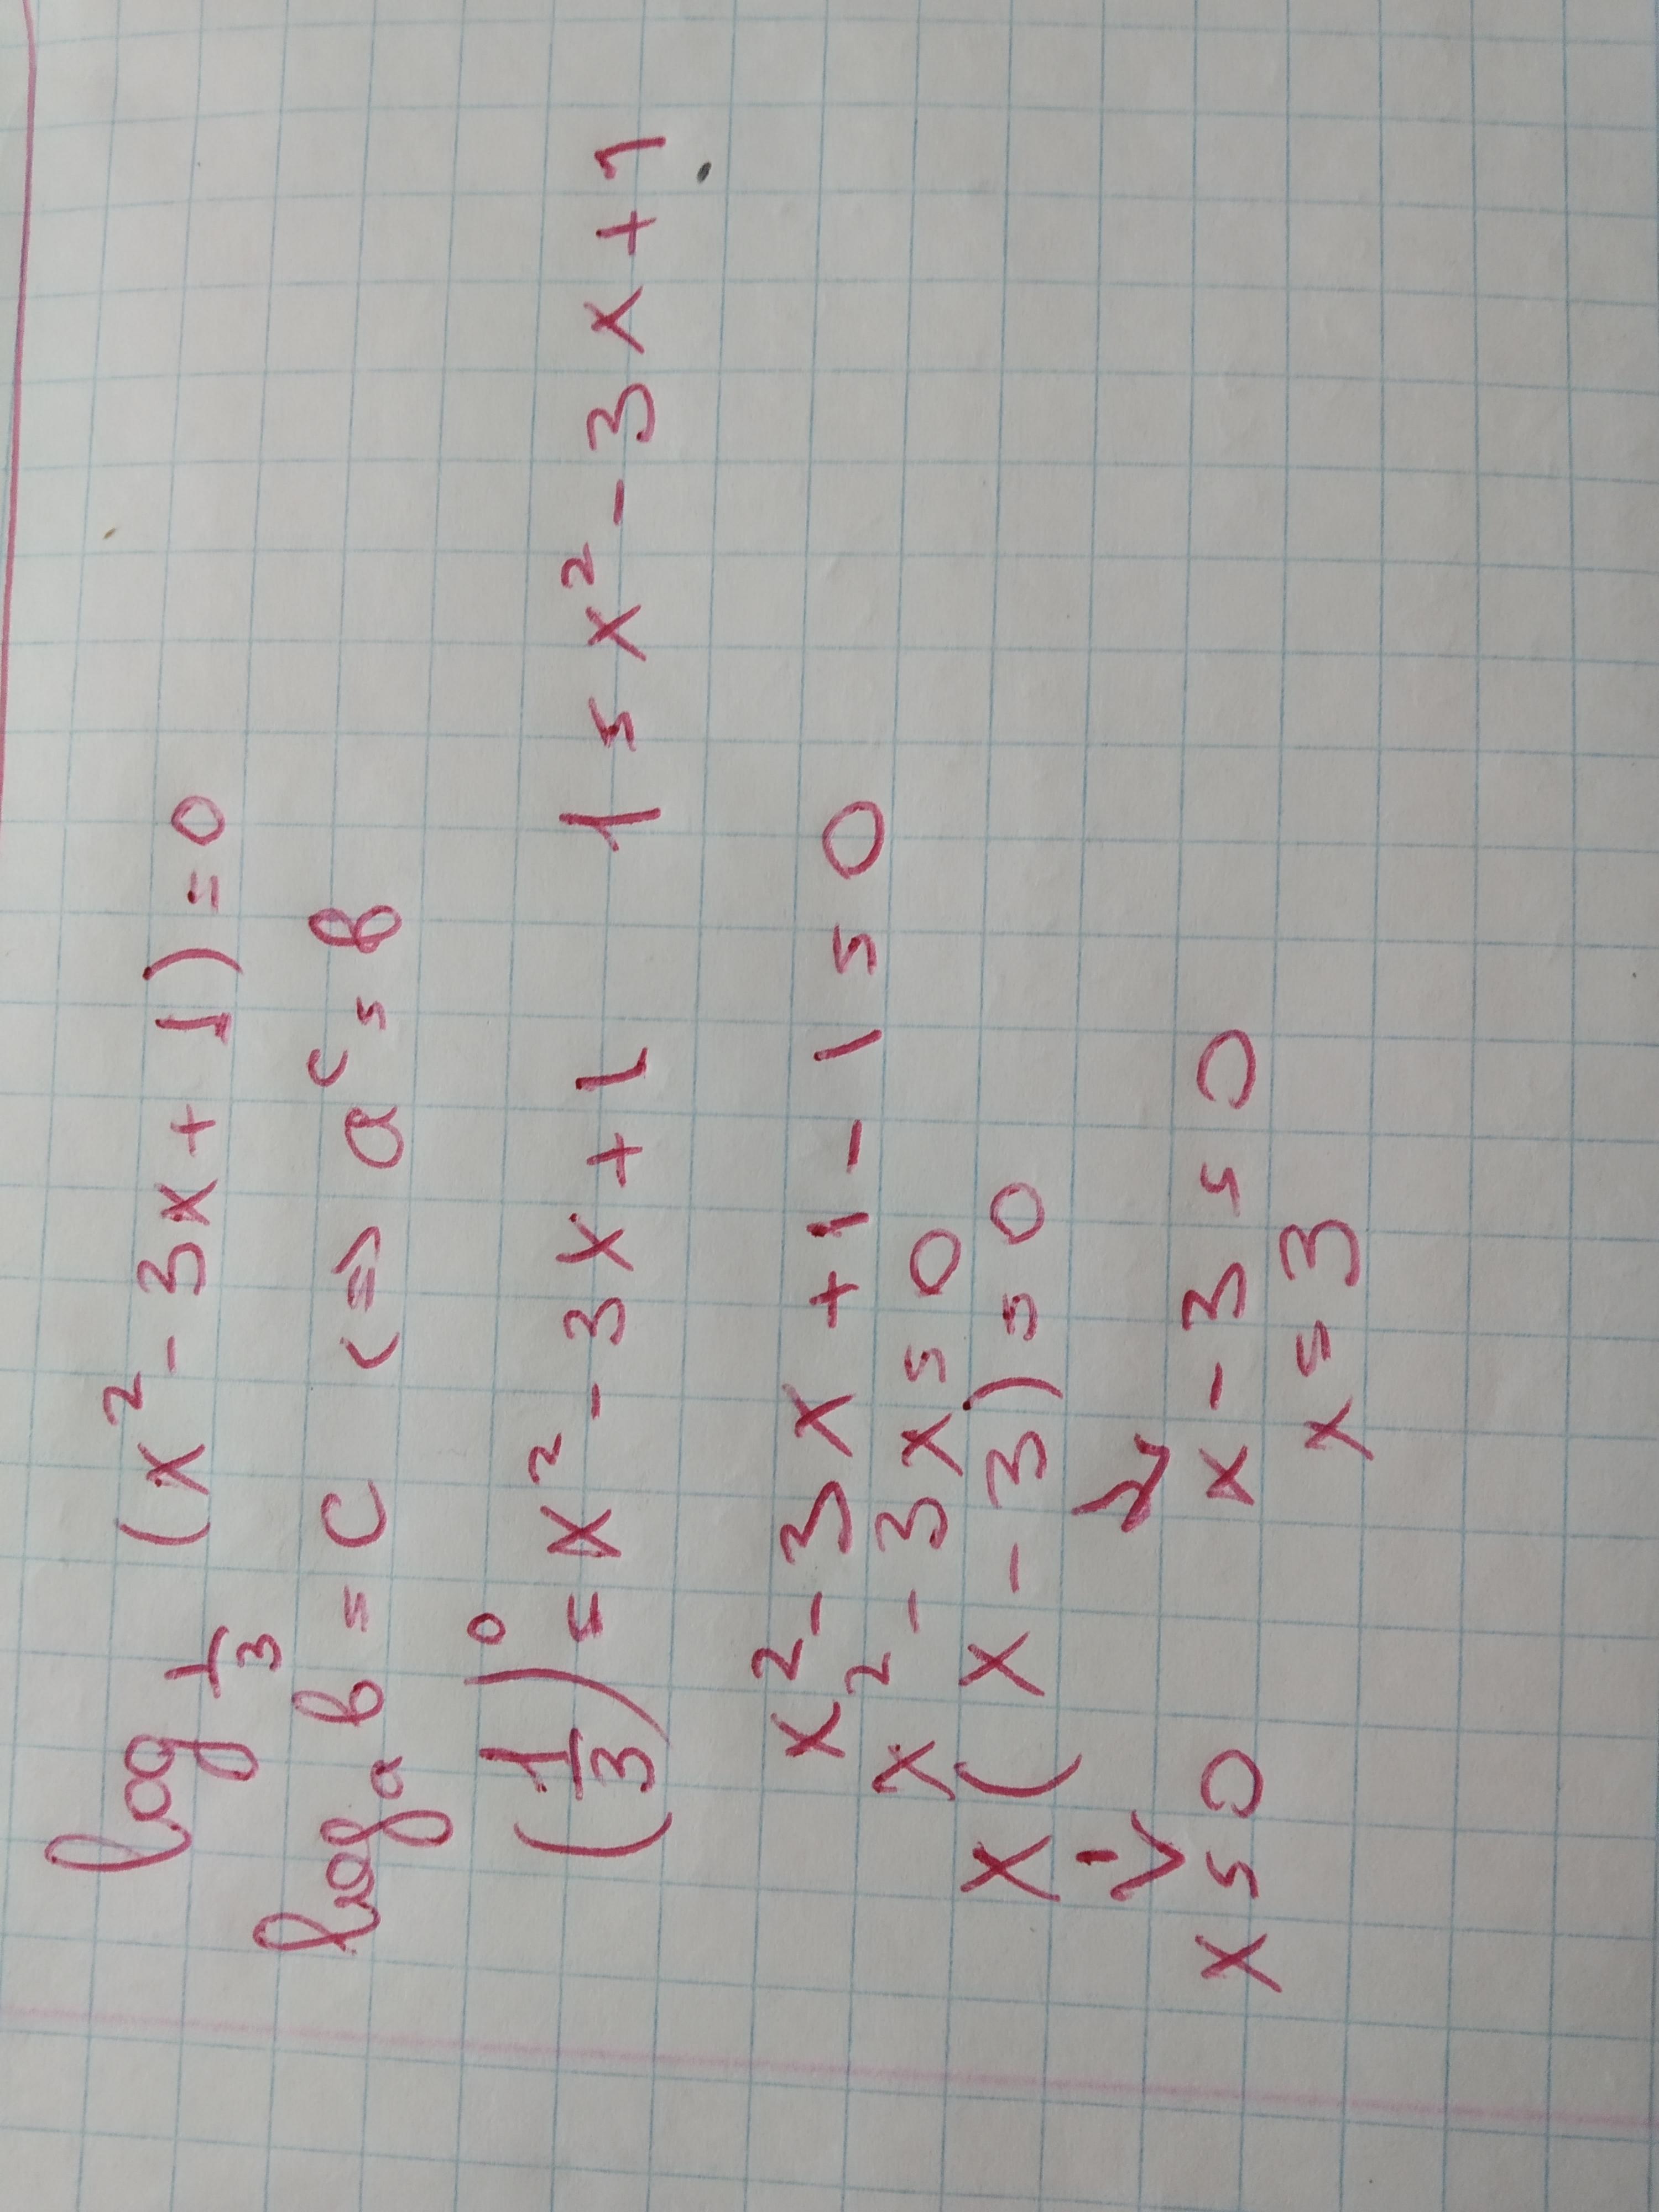 log 1/3 (x² - 3x + 1) = 0
logₐ b = c <=> aᶜ = b
(1/3)⁰ = x² - 3x + 1 1 = x² - 3x + 1
x² - 3x + 1 - 1 = 0
x² - 3x = 0
x(x - 3) = 0
↓ ↘
x = 0 x - 3 = 0
x = 3